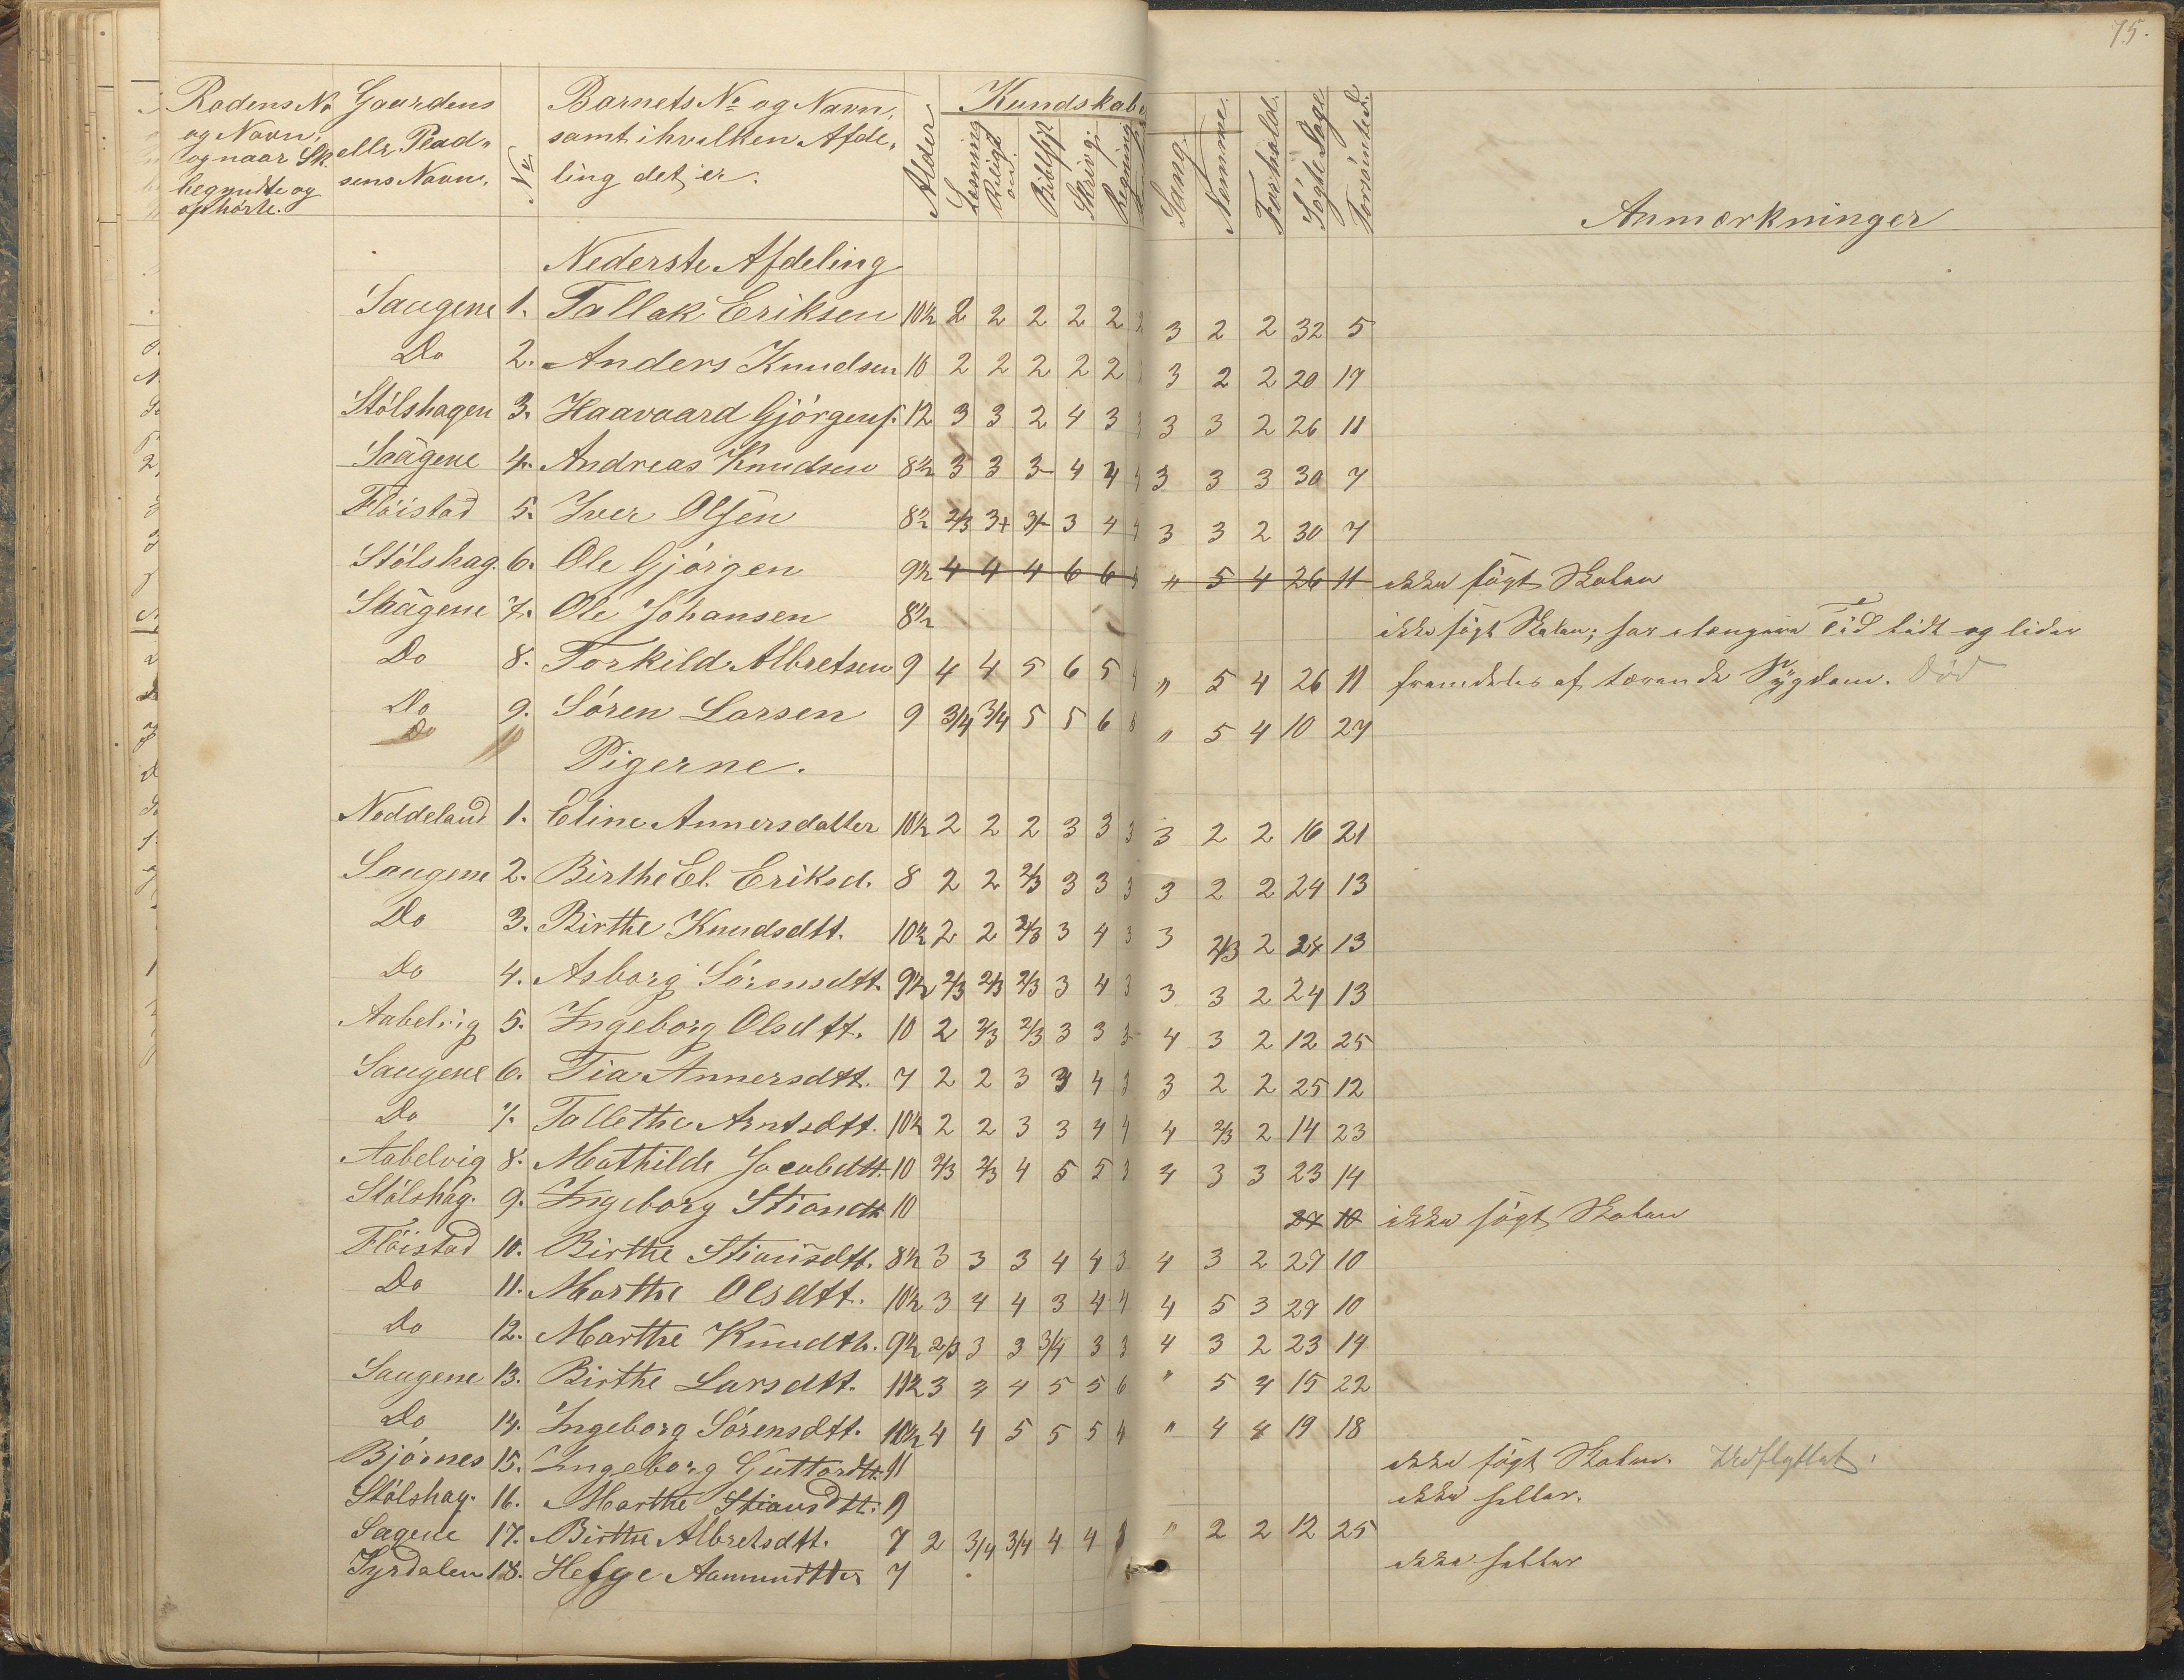 75.
Rodens No og Navn, og naar Sk. begyndte og ophørte.
Gaardens eller Plad- sens Navn.
No
Barnets No og Navn, samt i hvilken Afde- ling det er.
Alder
Kundskab
Læsning
Religion.
Skrivg:
Regning
Sang.
Nemme.
Forhold.
Søgte Dage
Forsømte D.
Anmærkninger
Nederste Afdeling
Saugene 1. Tallak Eriksen 10½ 2 2 2 2 2 2 3 2 2 32 5
Do 2. Anders Knudsen 10 2 2 2 2 2 3 2 2 20 17
Stølshagen 3. Haavaard Gjørgens. 12 3 3 2 4 3 3 3 3 2 26 11
Saagene 4. Andreas Knudsen 8½ 3 3 3 4 4 4 3 3 3 30 7
Fløistad 5. Iver Olsen 8½ 2/3 3+ 3/- 3 4 4 3 3 2 30 7
Stølshag. 6. Ole Gjørgen 9½ 4 4 4 6 6 " 5 4 26 11 ikke søgt Skolen
Saagene 7. Ole Johansen 8½ ikke søgt Skolen; har i længere Tid lidt og lider
Do 8. Torkild Albretsen 9 4 4 5 6 5 4 " 5 4 26 11 fremdeles af tærende Sygdom. Død
Do 9. Søren Larsen 9 3/4 3/4 5 5 6 6 " 5 4 10 27
Do 10
Pigerne.
Noddeland 1. Eline Annersdatter 10½ 2 2 2 3 3 3 3 2 2 16 21
Saugene 2. Birthe El. Eriksd. 8 2 2 2/3 3 3 3 3 2 2 24 13
Do 3. Birthe Knudsdtt. 10½ 2 2 2/3 3 4 3 3 2/3 2 24 13
Do 4. Asborg Sørensdtt. 9½ 2/3 2/3 2/3 3 4 3 3 3 2 24 13
Aabelvig 5. Ingeborg Olsdtt. 10 2 2/3 2/3 3 3 3 4 3 2 12 25
Saugene 6. Tia Annersdtt. 7 2 2 3 3 4 3 3 2 2 25 12
Do 7. Tallethe Arntsdtt. 10½ 2 2 3 3 4 4 4 2/3 2 14 23
Aabelvig 8. Mathilde Jacobdtt. 10 2/3 2/3 4 5 5 3 4 3 3 23 14
Stølshag. 9. Ingeborg Stiandtt 10 27 10 ikke søgt Skolen
Fløistad 10. Birthe Stiansdtt. 8½ 3 3 3 4 4 3 4 3 2 27 10
Do 11. Marthe Olsdtt. 10½ 3 4 4 3 4 4 4 5 3 27 10
Do 12. Marthe Knudtt. 9½ 2/3 3 3 3/4 3 3 4 3 2 23 14
Saugene 13. Birthe Larsdtt. 11½ 3 4 4 5 5 6 " 5 4 15 22
Do 14. Ingeborg Sørensdtt. 10½ 4 4 5 5 5 4 " 4 4 19 18
Bjørnes 15. Ingeborg Guttordtt. 11 ikke søgt Skolen. Udflyttet.
Stølshag. 16. Marthe Stiansdtt. 9 ikke heller.
Sagene 17. Birthe Albretsdtt. 7 2 3/4 3/4 4 4 " 2 2 12 25
Tyrdalen 18. Helge Aanundtter 7 ikke heller